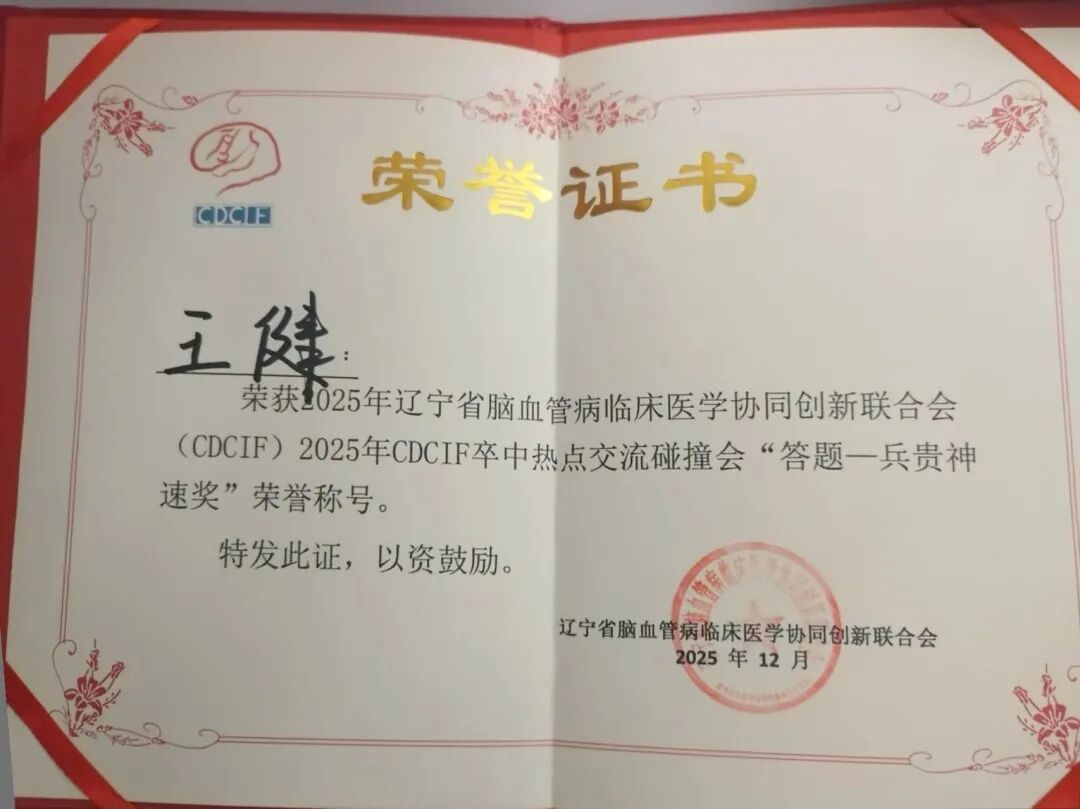 CDCIF
荣誉证书
王健:
荣获2025年辽宁省脑血管病临床医学协同创新联合会
（CDCIF）2025年CDCIF卒中热点交流碰撞会“答题—兵贵神
速奖”荣誉称号。
特发此证，以资鼓励。
辽宁省脑血管病临床医学协同创新联合会
2025 年 12 月